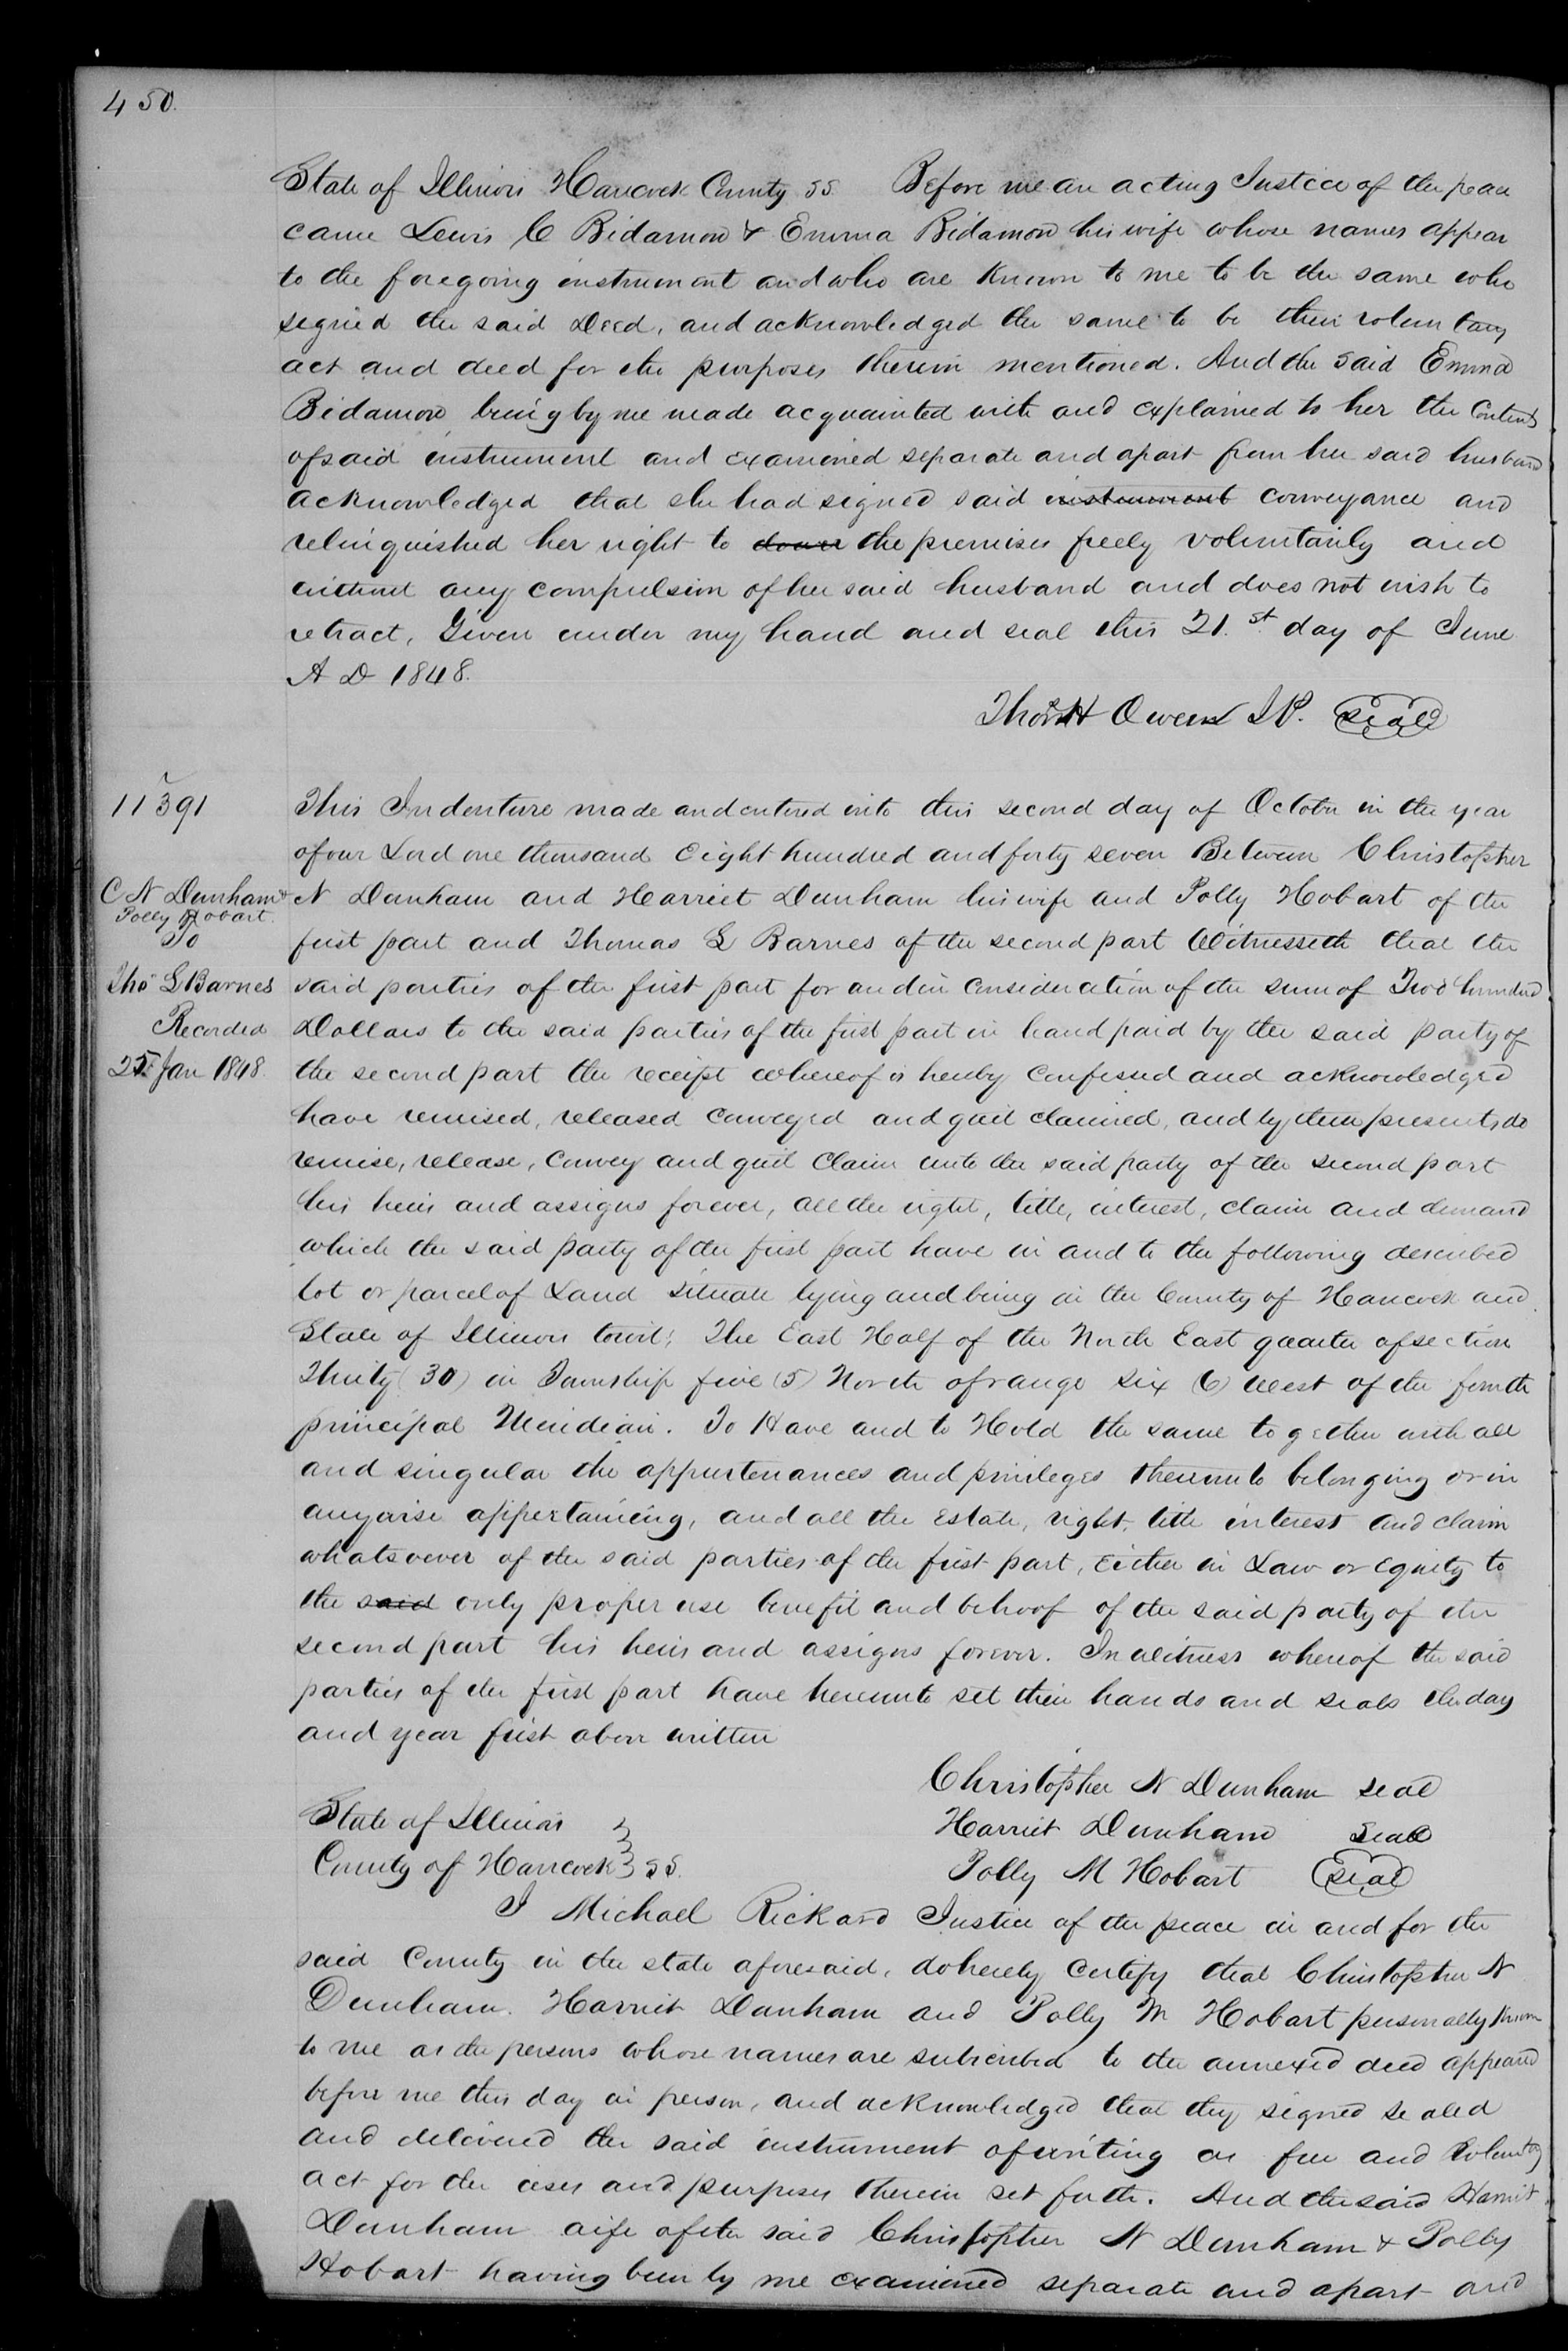 450.
State of Illinois Hancock County SS. Before me an acting Justice of the peace
came Lewis C Bidamon & Emma Bidamon his wife whose names appear
to the foregoing instrument and who are known to me to be the same who
signed the said Deed, and acknowledged the same to be their voluntary
act and deed for the purposes therein mentioned. And the said Emma
Bidamon being by me made acquainted with and explained to her the Contents
of said instrument and examined separate and apart from her said husband
acknowledged that she had signed said instrument conveyance and
relinquished her right to dower the premises freely voluntarily and
without any compulsion of her said husband and does not wish to
retract, Given under my hand and seal this 21.st day of June
A D 1848.
Thos H Owen J.P. Seal
11391
C N Dunham &
Polly Hobart.
To
Tho s L Barnes
Recorded
25 Jan 1848.
This Indenture made and entered into this second day of October in the year
of our Lord one thousand Eight hundred and forty seven Between Christopher
N Dunham and Harriet Dunham his wife and Polly Hobart of the
first part and Thomas L Barnes of the second part Witnesseth that the
said parties of the first part for and in Consideration of the sum of Two hundred
Dollars to the said parties of the first part in hand paid by the said party of
the second part the receipt whereof is hereby Confessed and acknowledged
have remised, released Conveyed and quit claimed, and by these presents, do
remise, release, Convey and quit Claim unto the said party of the second part
his heirs and assigns forever, all the right, title, interest, claim and demand
which the said party of the first part have in and to the following described
lot or parcel of Land situate lying and being in the County of Hancock and
State of Illinois towit; The East Half of the North East quarter of section
Thirty (30) in Township five (5) North of range six (6) West of the fourth
principal Meridian. To Have and to Hold the same together with all
and singular the appurtenances and privileges thereunto belonging or in
anywise appertaining, and all the Estate, right, title interest and claim
whatsoever of the said parties of the first part, Either in Law or Equity to
the said only proper use benefit and behoof of the said party of the
second part his heirs and assigns forever. In witness whereof the said
parties of the first part have hereunto set their hands and seals the day
and year first above written
Christopher N Dunham seal
Harriet Dunham Seal
Polly M Hobart Seal
State of Illinois
County of Hancock SS.
I Michael Rickard Justice of the peace in and for the
said County in the state aforesaid, do hereby Certify that Christopher N
Dunham. Harriet Dunham and Polly M Hobart personally known
to me as the persons whose names are subscribed to the annexed deed appeared
before me this day in person, and acknowledged that they signed sealed
and delivered the said instrument of writing as free and Voluntary
act for the uses and purposes therein set forth. And the said Harriet
Dunham wife of the said Christopher N Dunham & Polly
Hobart having been by me examined separate and apart and